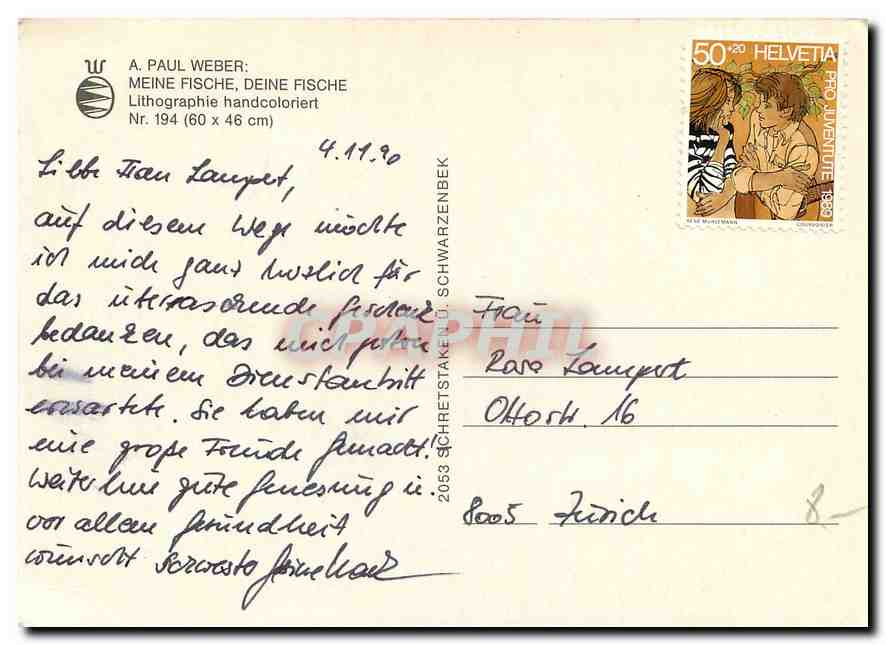 A. PAUL WEBER:
MEINE FISCHE, DEINE FISCHE
Lithographie handcoloriert
Nr. 194 (60 x 46 cm)
4.11.90
Liebe Frau Lampert,
auf diesem Wege möchte
ich mich ganz herzlich für
das überraschende Geschenk
bedanken, das mich gestern
bei meinem Dienstantritt
erwartete. Sie haben mir
eine große Freude gemacht!
Weiterhin gute Genesung u.
vor allem Gesundheit
wünscht Schwester
2053 SCHRETSTAKEN Ü. SCHWARZENBEK
50+20 HELVETIA
PRO JUVENTUTE 1989
RENE MÜHLEMANN
COURVOISIER
CPAPHIL
Frau
Rosa Lampert
Ottostr. 16
8005 Zürich
8-